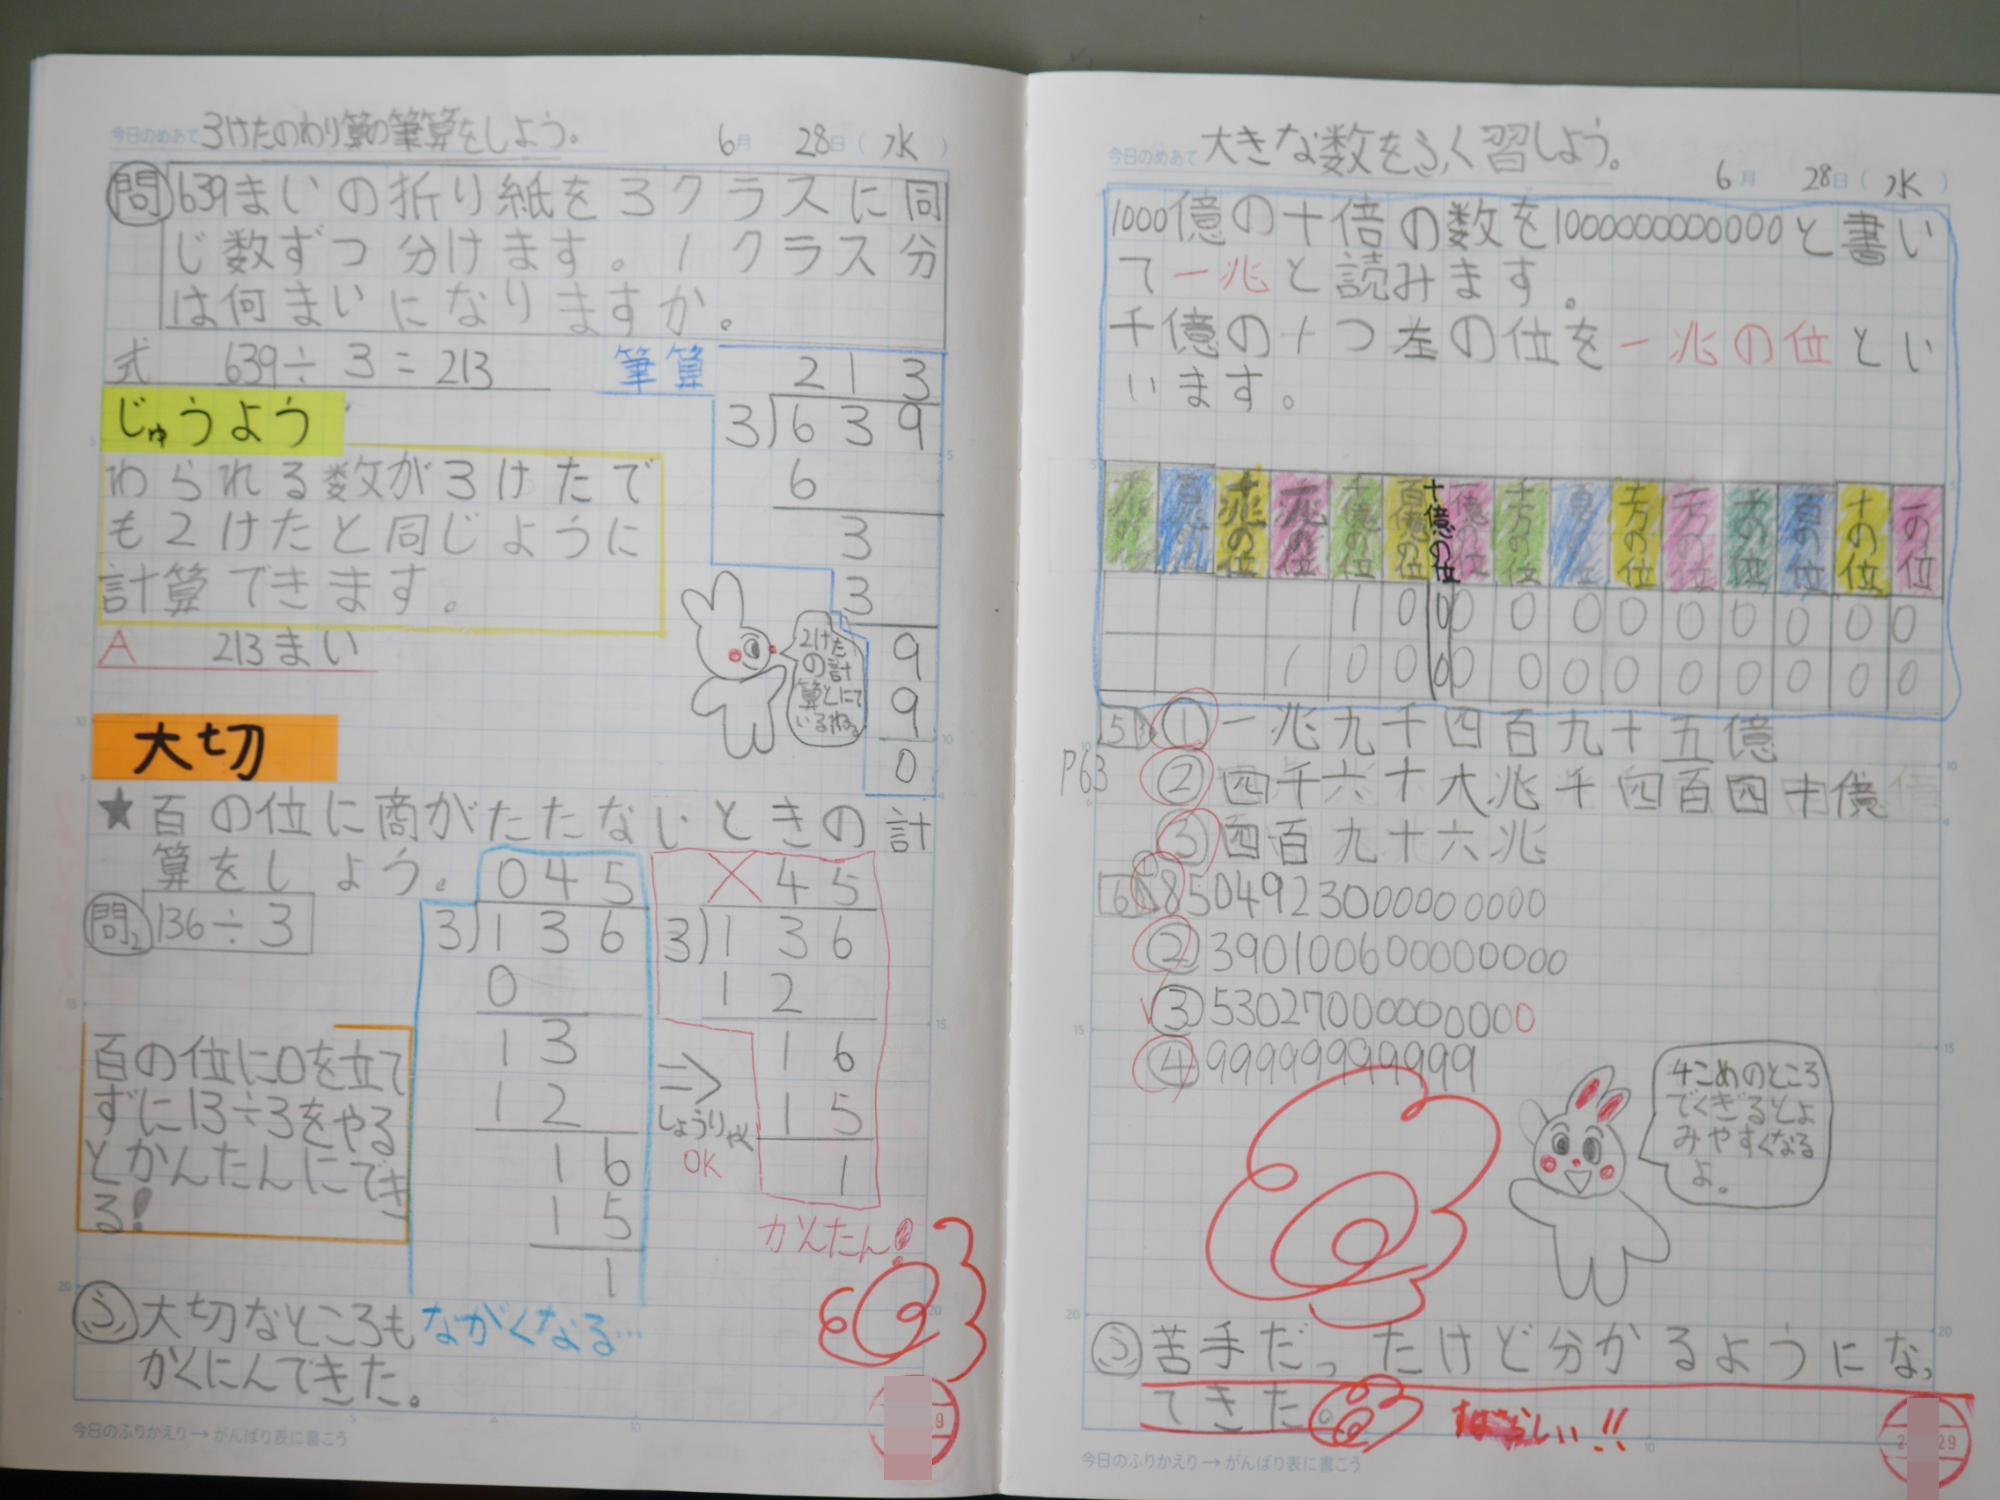 今日のめあて 3けたのわり算の筆算をしよう。
6月 28日(水)
問 639まいの折り紙を3クラスに同
じ数ずつ分けます。1クラス分
は何まいになりますか。
式 639÷3=213
筆算
213
3)639
6
3
3
9
9
0
じゅうよう
わられる数が3けたで
も2けたと同じように
計算できます。
A 213まい
2けた
の計
算とにて
いるね。
大切
★百の位に商がたたないときの計
算をしよう。
問2 136÷3
045
3)136
0
13
12
16
15
1
⇒
しょうりゃく
OK
×45
3)136
12
16
15
1
かんたん!
百の位に0を立て
ずに13÷3をやる
とかんたんにでき
る!
ながくなる…
ふ 大切なところも
かくにんできた。
今日のふりかえり→がんばり表に書こう
今日のめあて 大きな数をふく習しよう。
6月 28日(水)
1000億の十倍の数を1000000000000と書い
て一兆と読みます。
千億の1つ左の位を一兆の位とい
います。
千億の位 百億の位 十億の位 一億の位 千万の位 十万の位 一万の位 千の位 百の位 十の位 一の位
1 0 0 0 0 0 0 0 0 0 0 0
1 0 0 0 0 0 0 0 0 0 0 0 0
5 ① 一兆九千四百九十五億
P63 ② 四千六十六兆千四百四十億
③ 四百九十六兆
6 ① 850492300000000
② 3901006000000000
③ 530270000000000
④ 99999999999
4こめのところ
でくぎるとよ
みやすくなる
よ。
ふ 苦手だったけど分かるようになっ
てきた。
すばらしい!!
今日のふりかえり→がんばり表に書こう